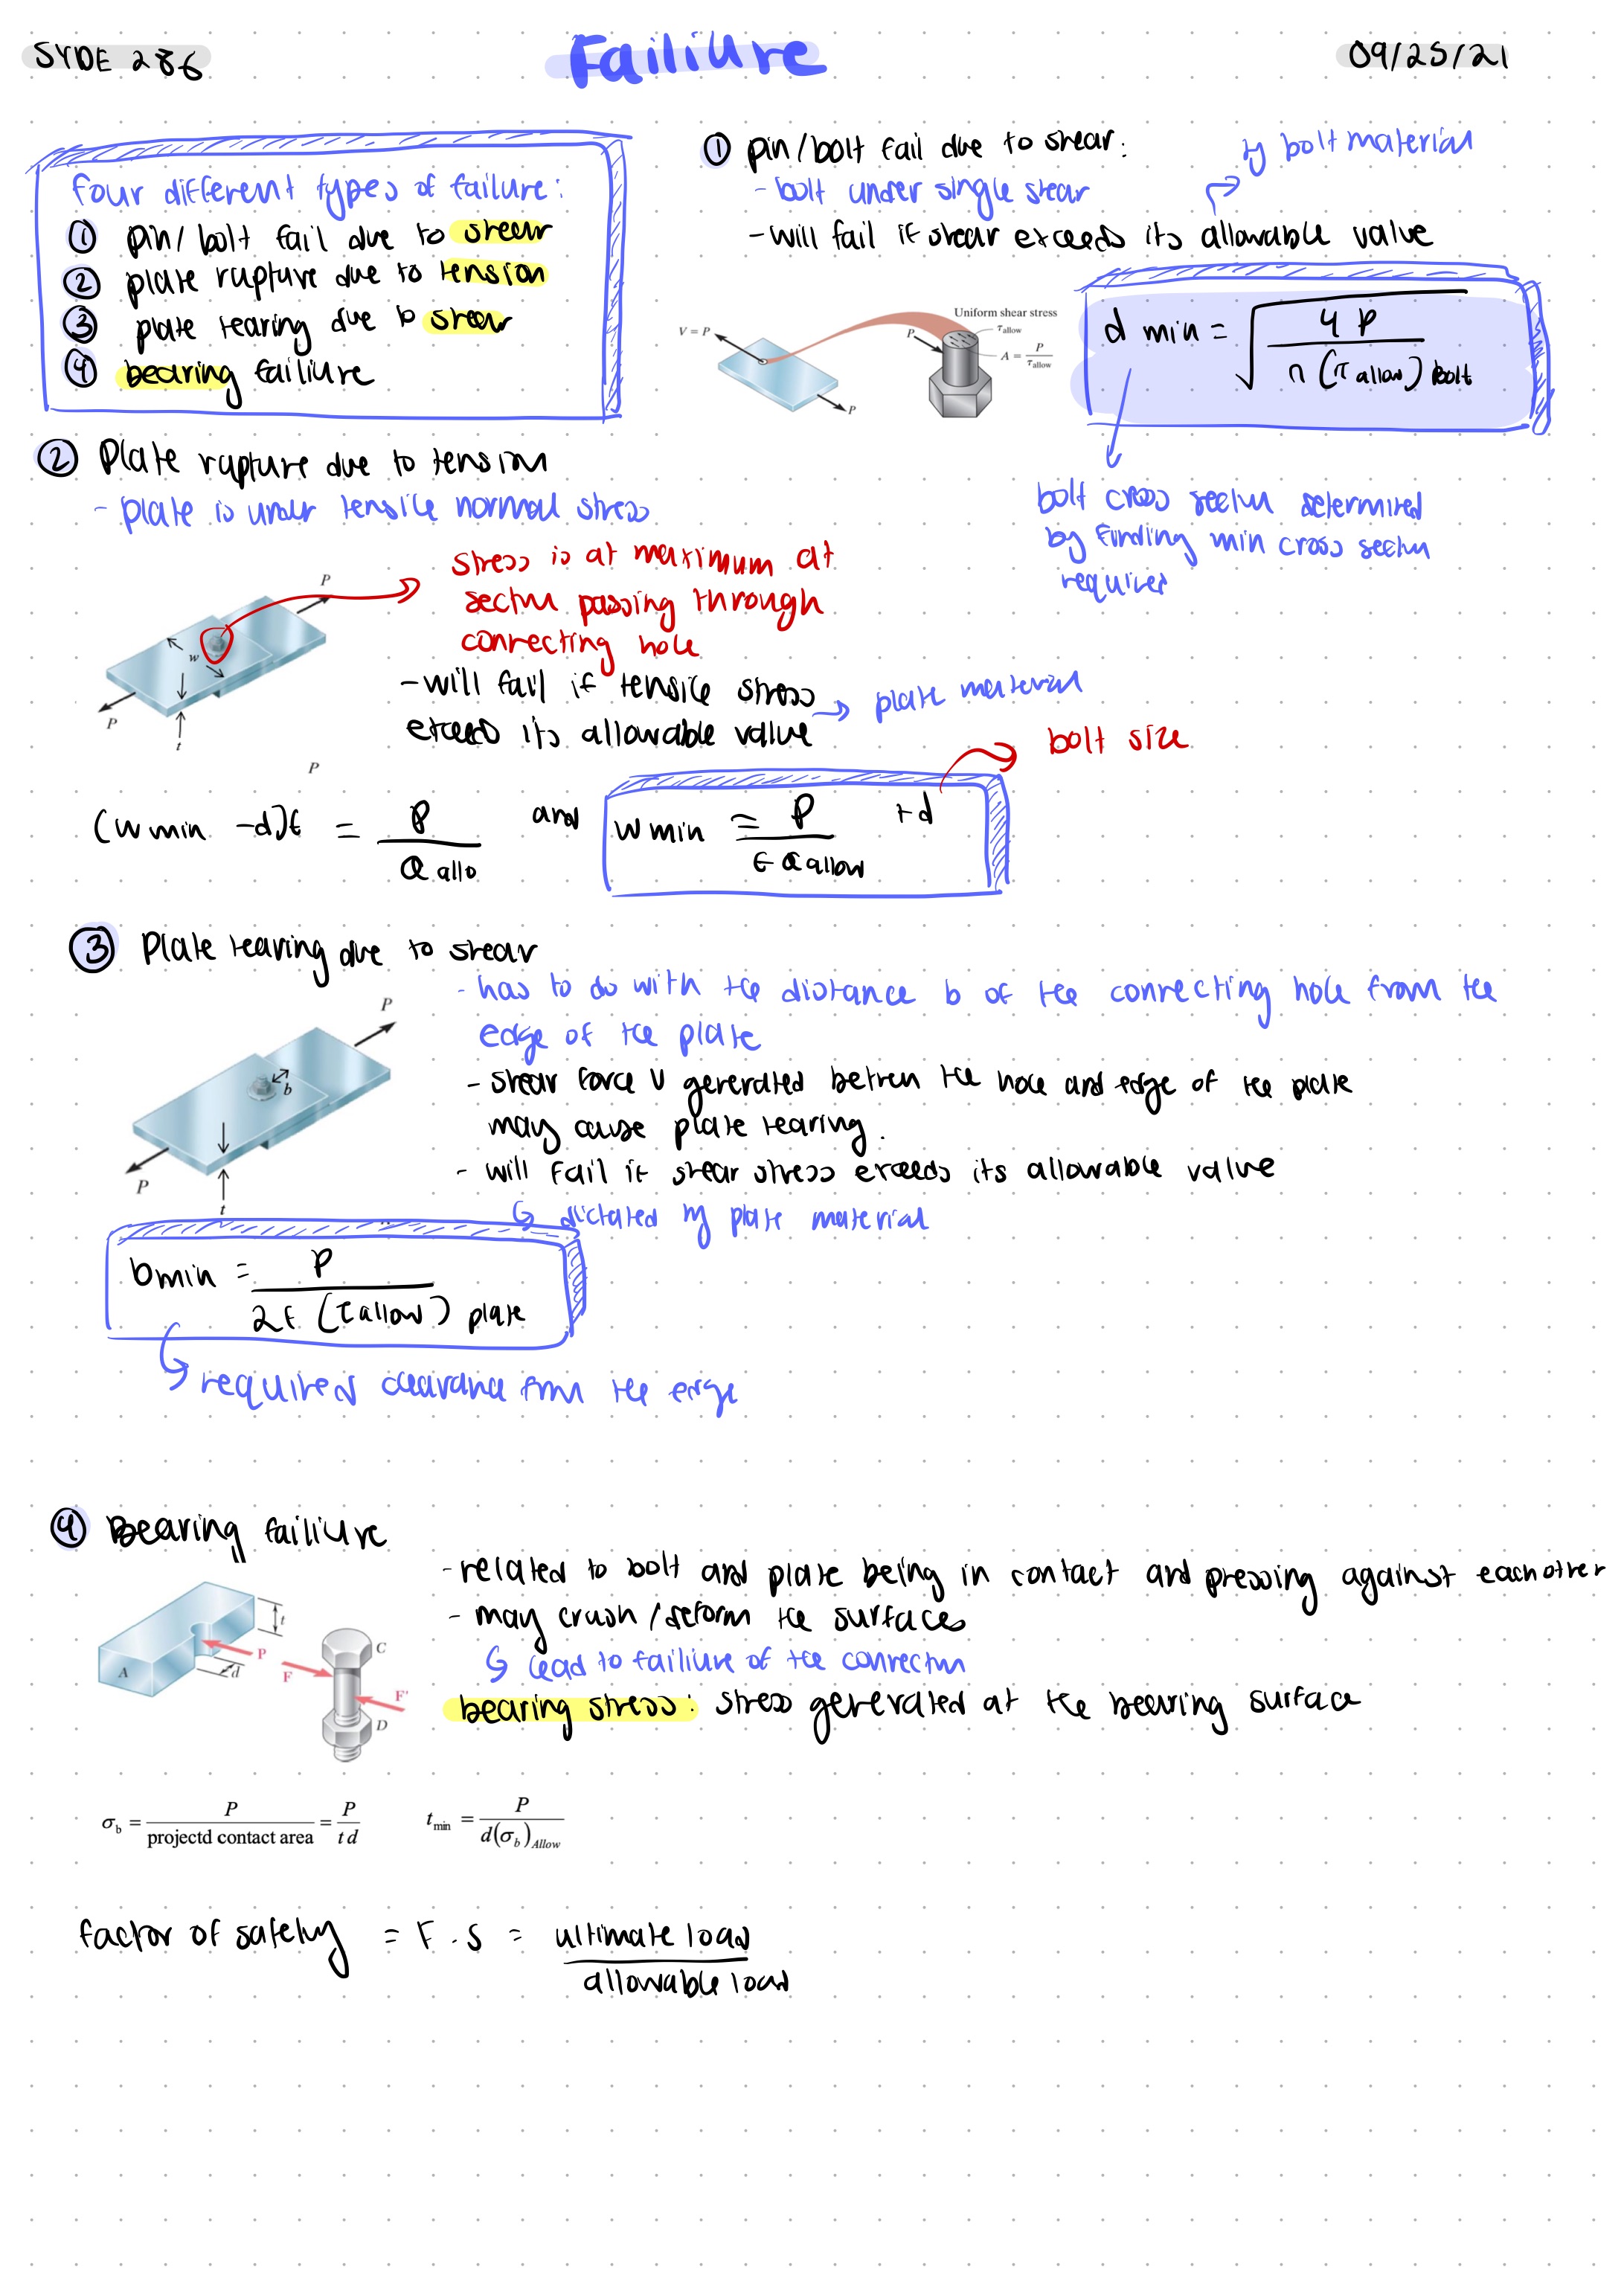 SYDE 286
Failiure
09/25/21
Four different types of failure:
① pin/bolt fail due to shear
② plate rupture due to tension
③ plate tearing due to shear
④ bearing failiure
① pin/bolt fail due to shear:
by bolt material
- bolt under single shear
- will fail if shear exceeds its allowable value
Uniform shear stress
V = P
P
τallow
A = P / τallow
P
d min = √(4P / π (τ allow) bolt)
bolt cross section determined
by finding min cross section
required
② Plate rupture due to tension
- plate is under tensile normal stress
stress is at maximum at
section passing through
connecting hole
P
w
P
t
- will fail if tensile stress
exceeds its allowable value
plate material
bolt size
P
(w min - d)t = P / σ allo
and
w min = P / t σ allow + d
③ Plate tearing due to shear
- has to do with the distance b of the connecting hole from the
edge of the plate
- shear force V generated betwen the hole and edge of the plate
may cause plate tearing.
- will fail if shear stress exceeds its allowable value
dictated by plate material
P
b
P
t
bmin = P / 2t (τ allow) plate
required clearance from the edge
④ Bearing failiure
- related to bolt and plate being in contact and pressing against each other
- may crush/deform the surfaces
lead to failiure of the connection
bearing stress: stress generated at the bearing surface
t
A
d
P
F
C
F'
D
σb = P / projectd contact area = P / t d
tmin = P / d(σb)Allow
factor of safety = F.S = ultimate load / allowable load